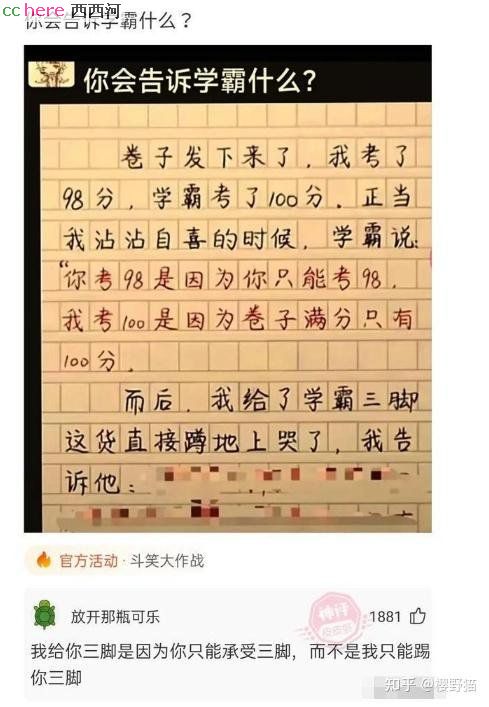 cc here 西西河
你会告诉学霸什么？
你会告诉学霸什么?
卷子发下来了，我考了
98分，学霸考了100分．正当
我沾沾自喜的时候，学霸说：
“你考98是因为你只能考98，
我考100是因为卷子满分只有
100分．
而后，我给了学霸三脚
这货直接蹲地上哭了，我告
诉他：
官方活动 · 斗笑大作战
放开那瓶可乐
神评
1881
我给你三脚是因为你只能承受三脚，而不是我只能踢
你三脚
知乎 @樱野猫